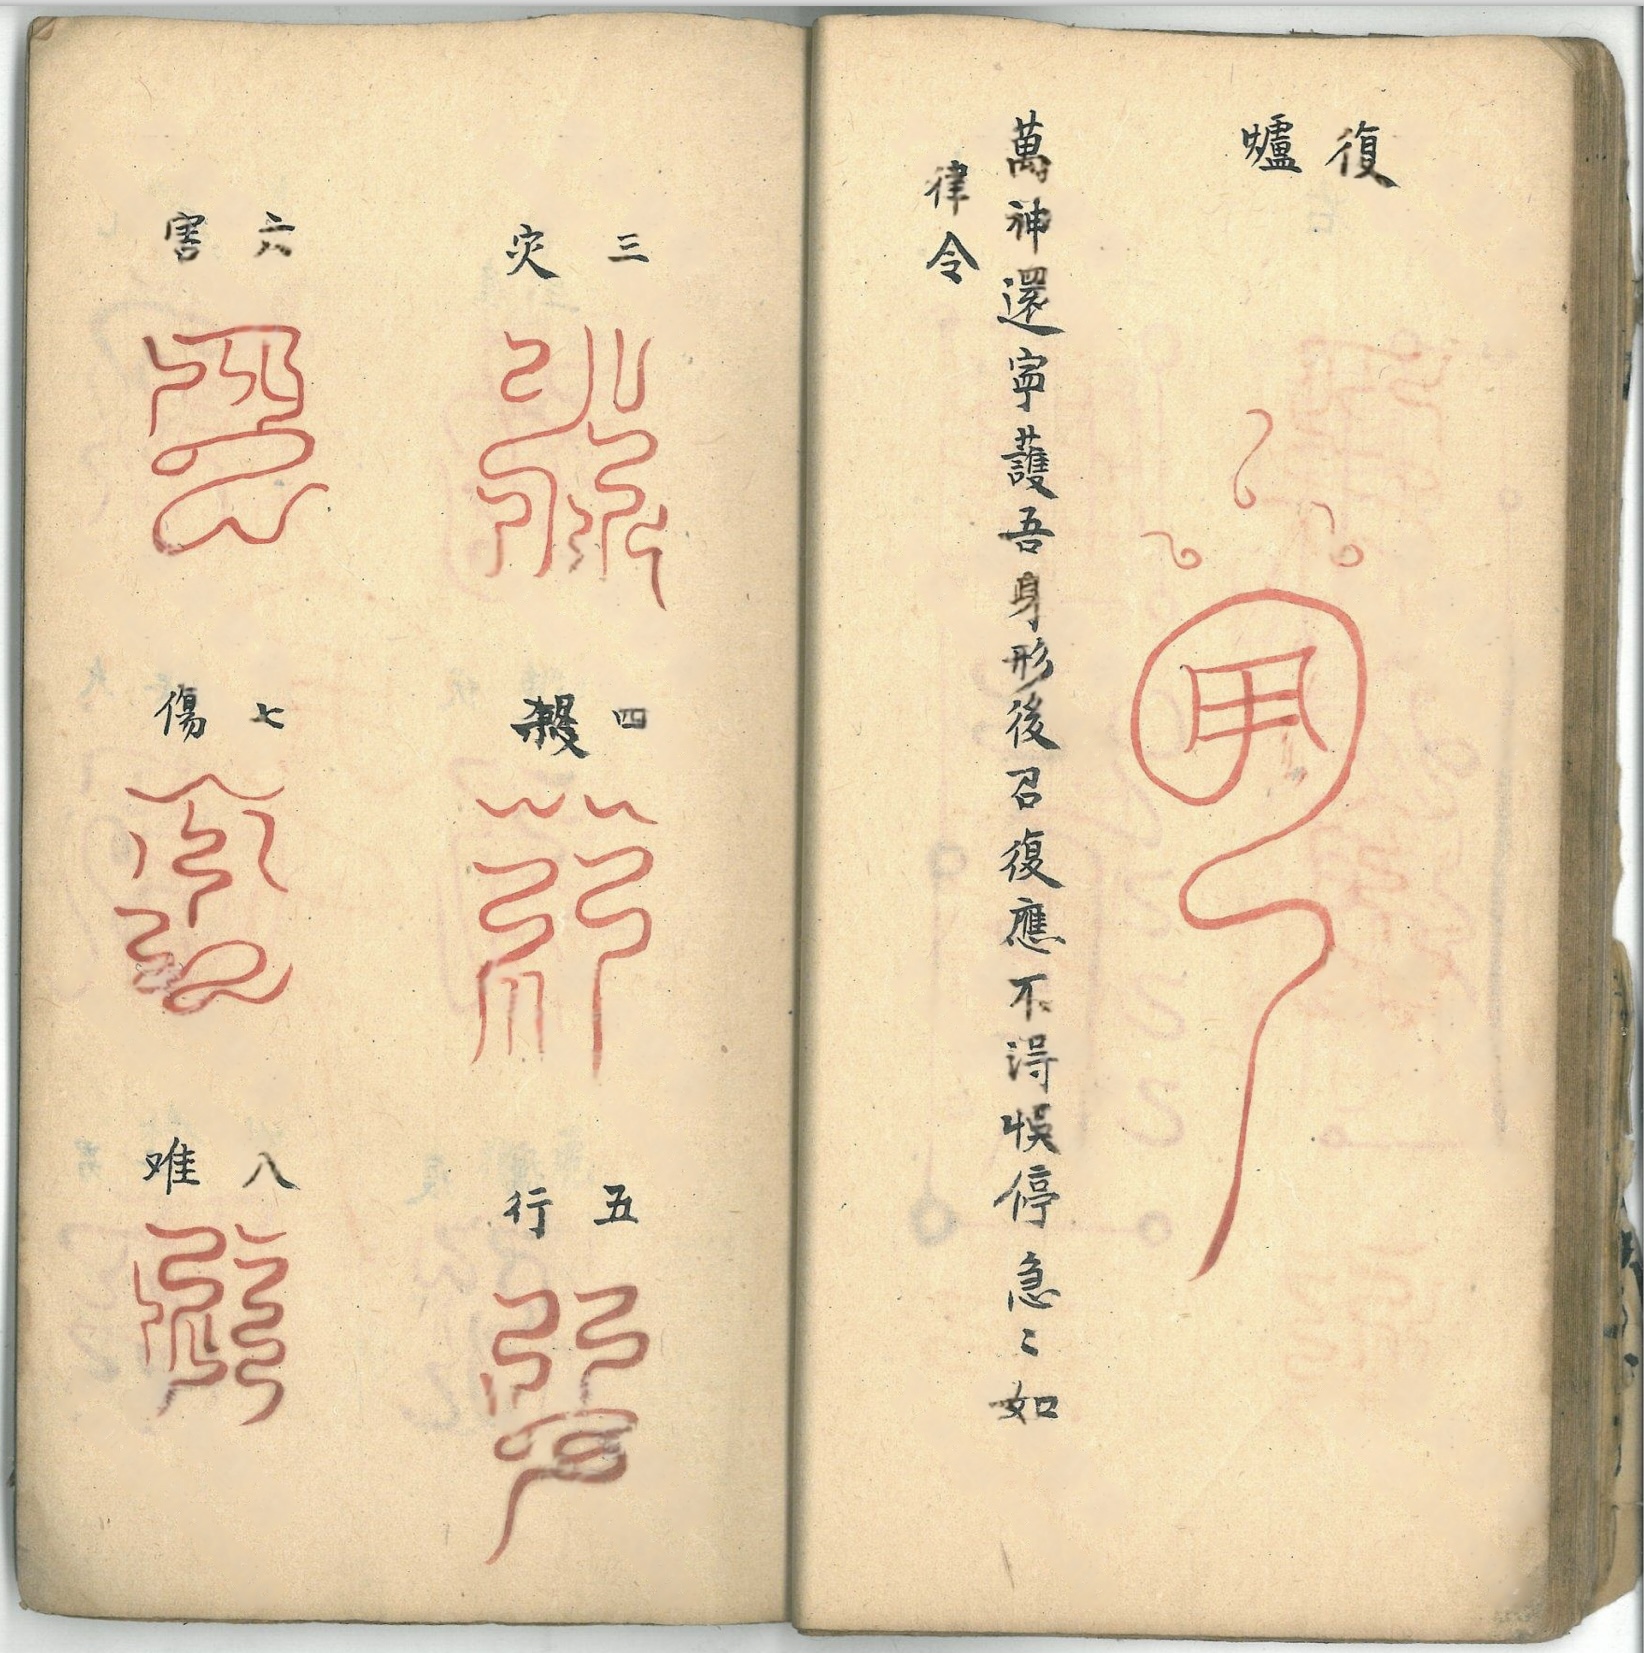 復爐
萬神還寕護吾身形後召復應不得悮停急〻如
律令
三灾
四殺
五行
六害
七傷
八难